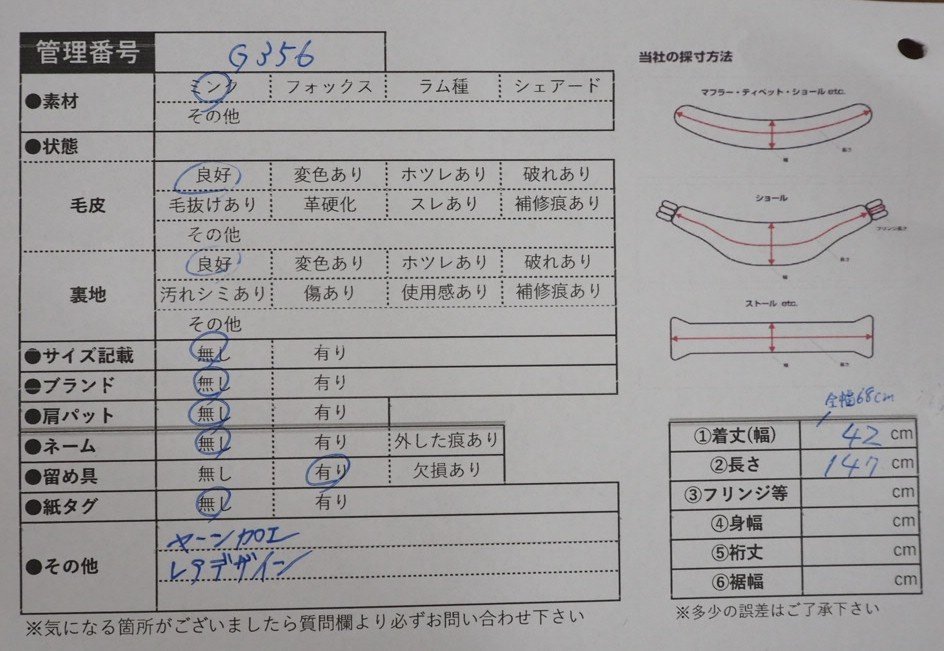 管理番号 G356
●素材 ミンク フォックス ラム種 シェアード
その他
●状態
毛皮 良好 変色あり ホツレあり 破れあり
毛抜けあり 革硬化 スレあり 補修痕あり
その他
裏地 良好 変色あり ホツレあり 破れあり
汚れシミあり 傷あり 使用感あり 補修痕あり
その他
●サイズ記載 無し 有り
●ブランド 無し 有り
●肩パット 無し 有り
●ネーム 無し 有り 外した痕あり
●留め具 無し 有り 欠損あり
●紙タグ 無し 有り
●その他 ヤーン加工
レアデザイン
※気になる箇所がございましたら質問欄より必ずお問い合わせ下さい
当社の採寸方法
マフラー・ティペット・ショール etc.
長さ
幅
ショール
フリンジ長さ
長さ
幅
ストール etc.
幅
長さ
全幅68cm
①着丈(幅) 42 cm
②長さ 147 cm
③フリンジ等 cm
④身幅 cm
⑤裄丈 cm
⑥裾幅 cm
※多少の誤差はご了承下さい